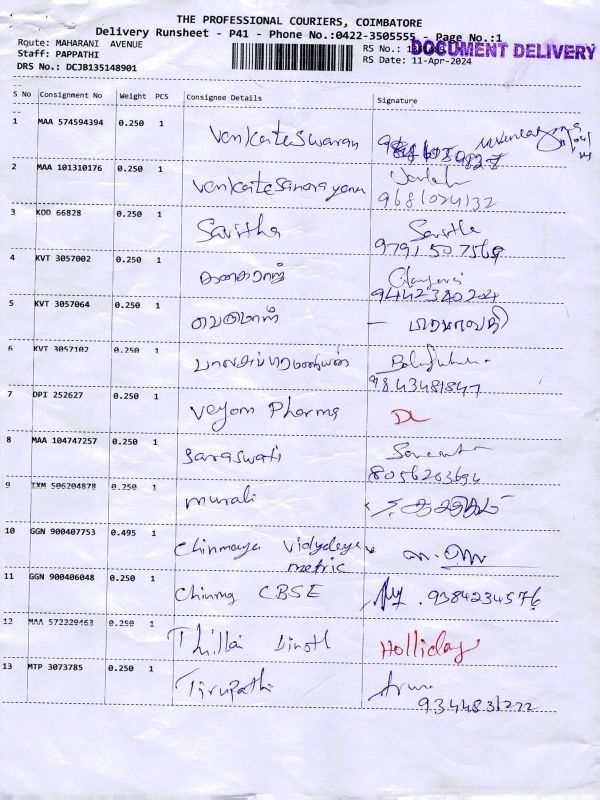 THE PROFESSIONAL COURIERS, COIMBATORE
Delivery Runsheet - P41 - Phone No.:0422-3505555 - Page No.:1
Route: MAHARANI AVENUE
RS No.:
DOCUMENT DELIVERY
Staff: PAPPATHI
RS Date: 11-Apr-2024
DRS No.: DCJB135148901
S No Consignment No Weight PCS Consignee Details Signature
1 MAA 574594394 0.250 1 Venkateswaran
2 MAA 101310176 0.250 1 Venkatesanarayanan
9681024132
3 KOD 66828 0.250 1 Savitha Savitha
9791507569
4 KVT 3057002 0.250 1 கனகராஜ்
9442340204
5 KVT 3057064 0.250 1 பெருமாள் —
6 KVT 3057102 0.250 1 பாலசுப்ரமணியன்
9843481847
7 DPI 252627 0.250 1 Veyom Pharma DL
8 MAA 104747257 0.250 1 Saraswati
8056203694
9 IXM 506204878 0.250 1 murali
10 GGN 900407753 0.495 1 Chinmaya Vidyalaya
metric
11 GGN 900406048 0.250 1 Chinmy CBSE 9384234576
12 MAA 572229463 0.250 1 Thillai Holliday
13 MTP 3073785 0.250 1 Tirupathi Arun
9344831222